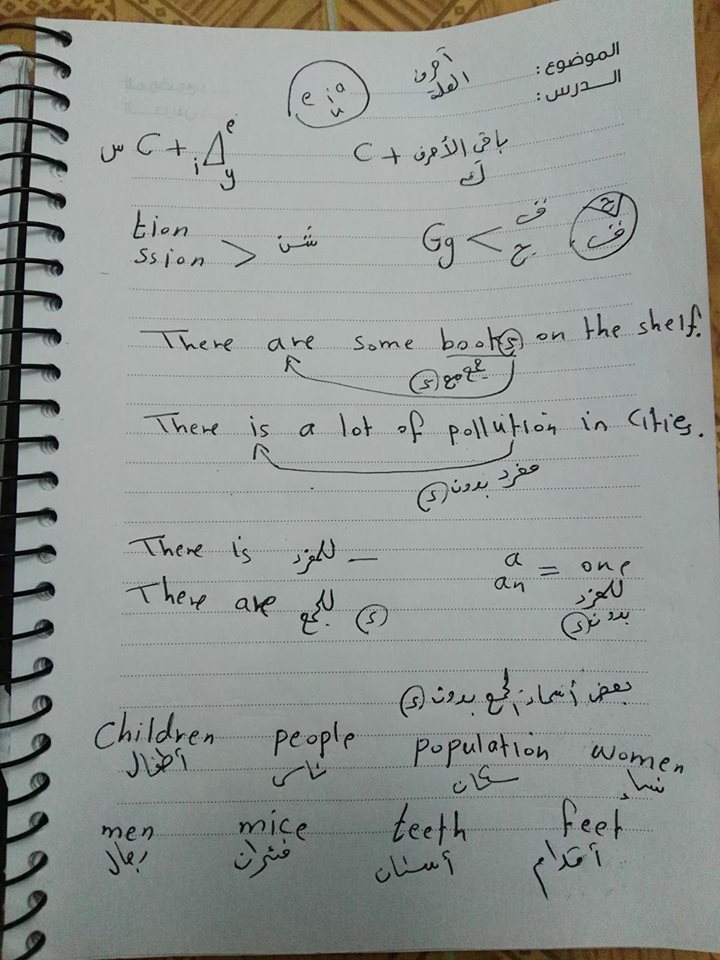 الموضوع: أحرف العلة
الدرس:
e i a u
س C + i e y
C + باقي الأحرف ك
tion
ssion > شن
Gg < ف ج
ج ف
There are some books on the shelf.
جمع مع (s)
There is a lot of pollution in cities.
مفرد بدون (s)
There is للمفرد —
There are للجمع (s)
a
an = one
للمفرد
بدون (s)
بعض أسماء الجمع بدون (s)
Children people population women
أطفال ناس سكان نساء
men mice teeth feet
رجال فئران أسنان أقدام